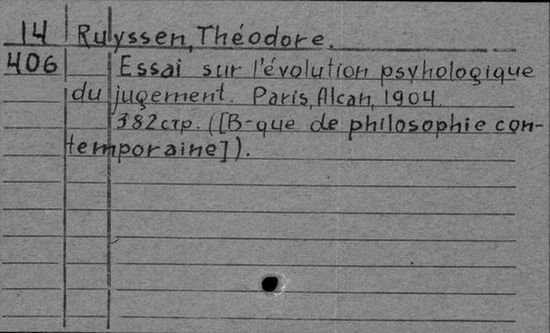 14 Ruyssen, Théodore.
406 Essai sur l'évolution psyhologique
du jugement. Paris, Alcan, 1904.
382 стр. ([B-que de philosophie con-
temporaine]).